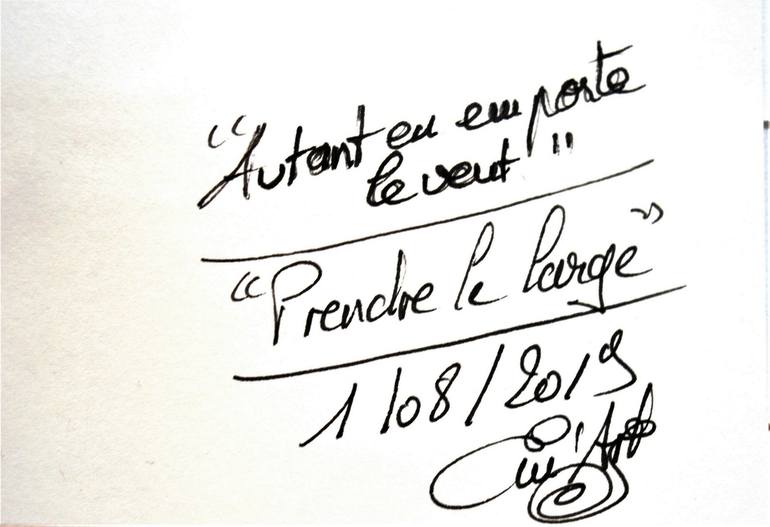 "Autant en emporte
le vent"
"Prendre le large"
1/08/2019